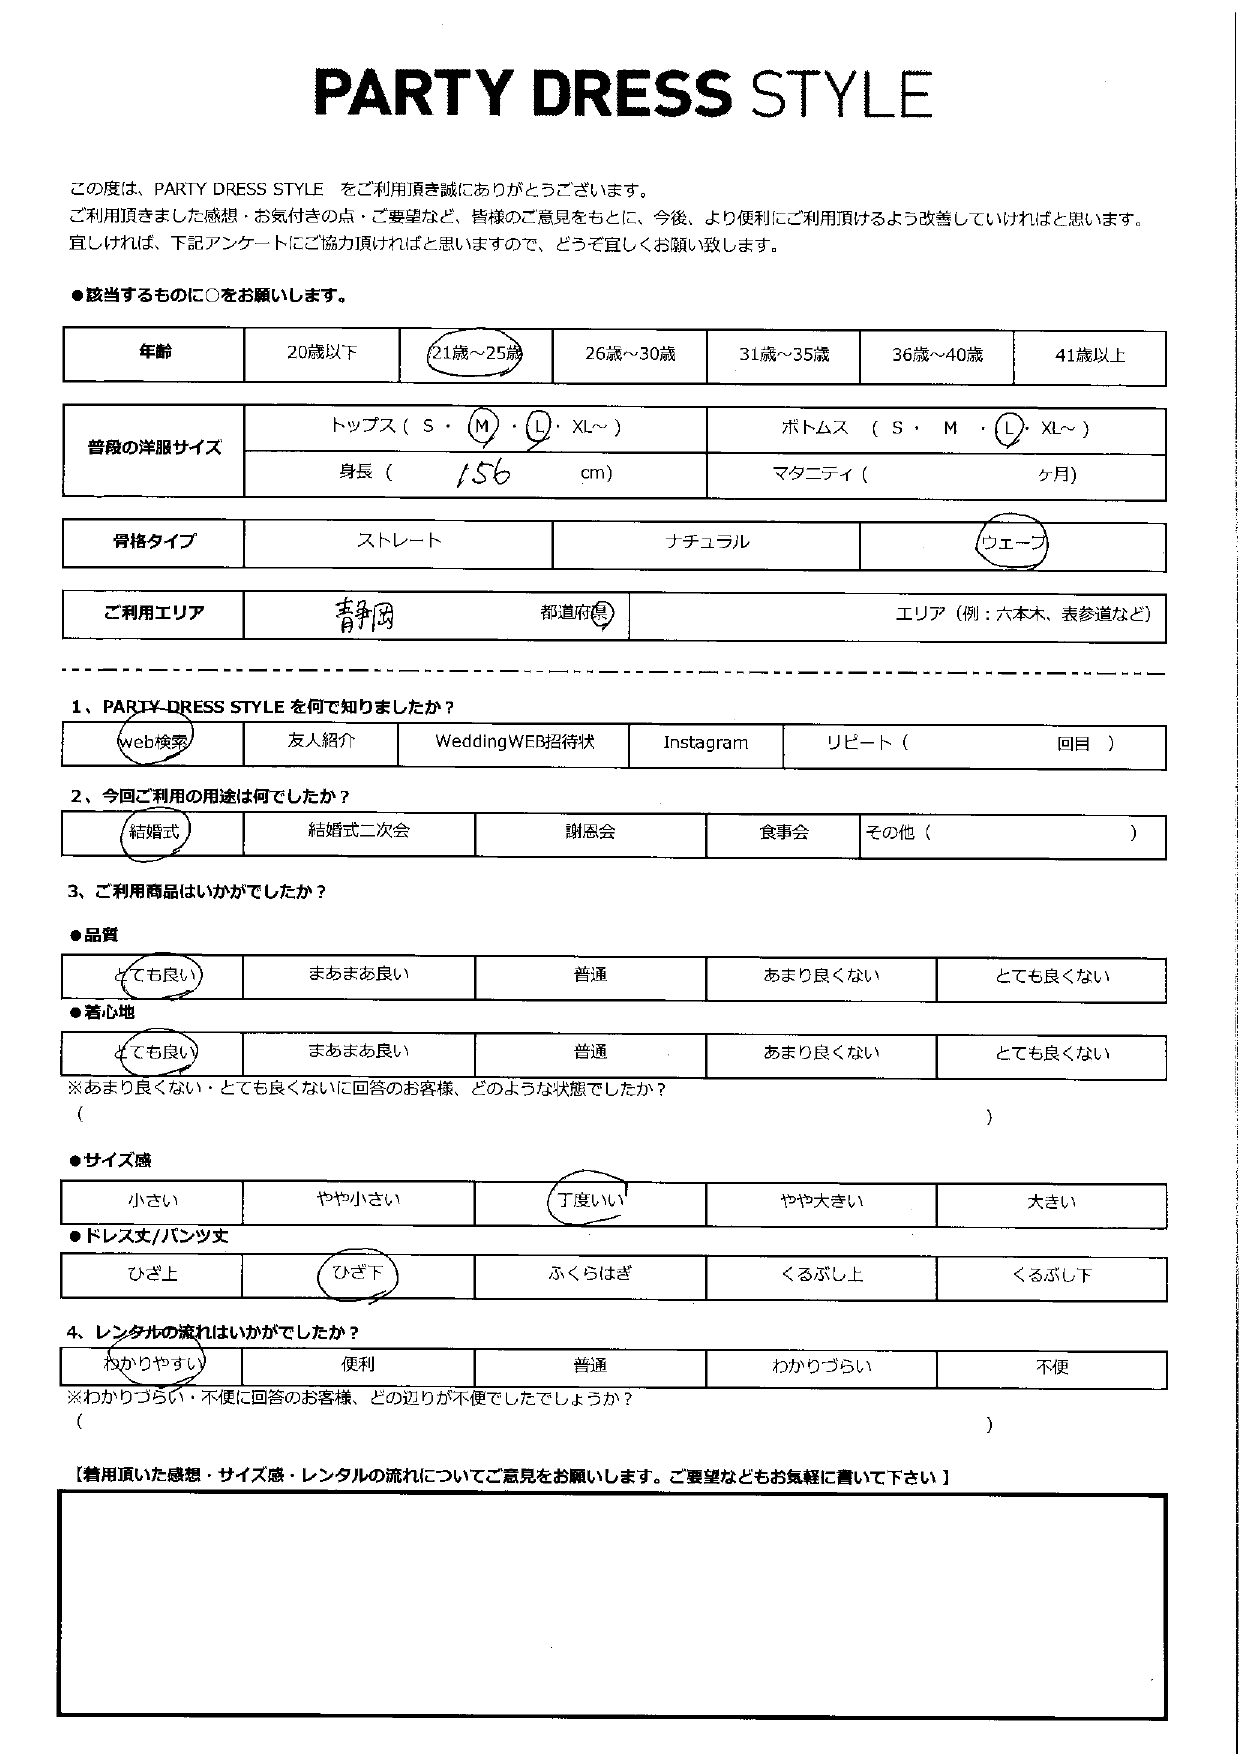 PARTY DRESS STYLE
この度は、PARTY DRESS STYLE　をご利用頂き誠にありがとうございます。
ご利用頂きました感想・お気付きの点・ご要望など、皆様のご意見をもとに、今後、より便利にご利用頂けるよう改善していければと思います。
宜しければ、下記アンケートにご協力頂ければと思いますので、どうぞ宜しくお願い致します。
●該当するものに○をお願いします。
年齢 20歳以下 21歳～25歳 26歳～30歳 31歳～35歳 36歳～40歳 41歳以上
普段の洋服サイズ トップス ( S ・ M ・ L ・ XL～ ) ボトムス ( S ・ M ・ L ・ XL～ )
身長 ( 156 cm) マタニティ ( ヶ月)
骨格タイプ ストレート ナチュラル ウェーブ
ご利用エリア 静岡 都道府県 エリア（例：六本木、表参道など）
1、PARTY DRESS STYLE を何で知りましたか？
web検索 友人紹介 WeddingWEB招待状 Instagram リピート ( 回目 )
2、今回ご利用の用途は何でしたか？
結婚式 結婚式二次会 謝恩会 食事会 その他 ( )
3、ご利用商品はいかがでしたか？
●品質
とても良い まあまあ良い 普通 あまり良くない とても良くない
●着心地
とても良い まあまあ良い 普通 あまり良くない とても良くない
※あまり良くない・とても良くないに回答のお客様、どのような状態でしたか？
( )
●サイズ感
小さい やや小さい 丁度いい やや大きい 大きい
●ドレス丈/パンツ丈
ひざ上 ひざ下 ふくらはぎ くるぶし上 くるぶし下
4、レンタルの流れはいかがでしたか？
わかりやすい 便利 普通 わかりづらい 不便
※わかりづらい・不便に回答のお客様、どの辺りが不便でしたでしょうか？
( )
【着用頂いた感想・サイズ感・レンタルの流れについてご意見をお願いします。ご要望などもお気軽に書いて下さい 】